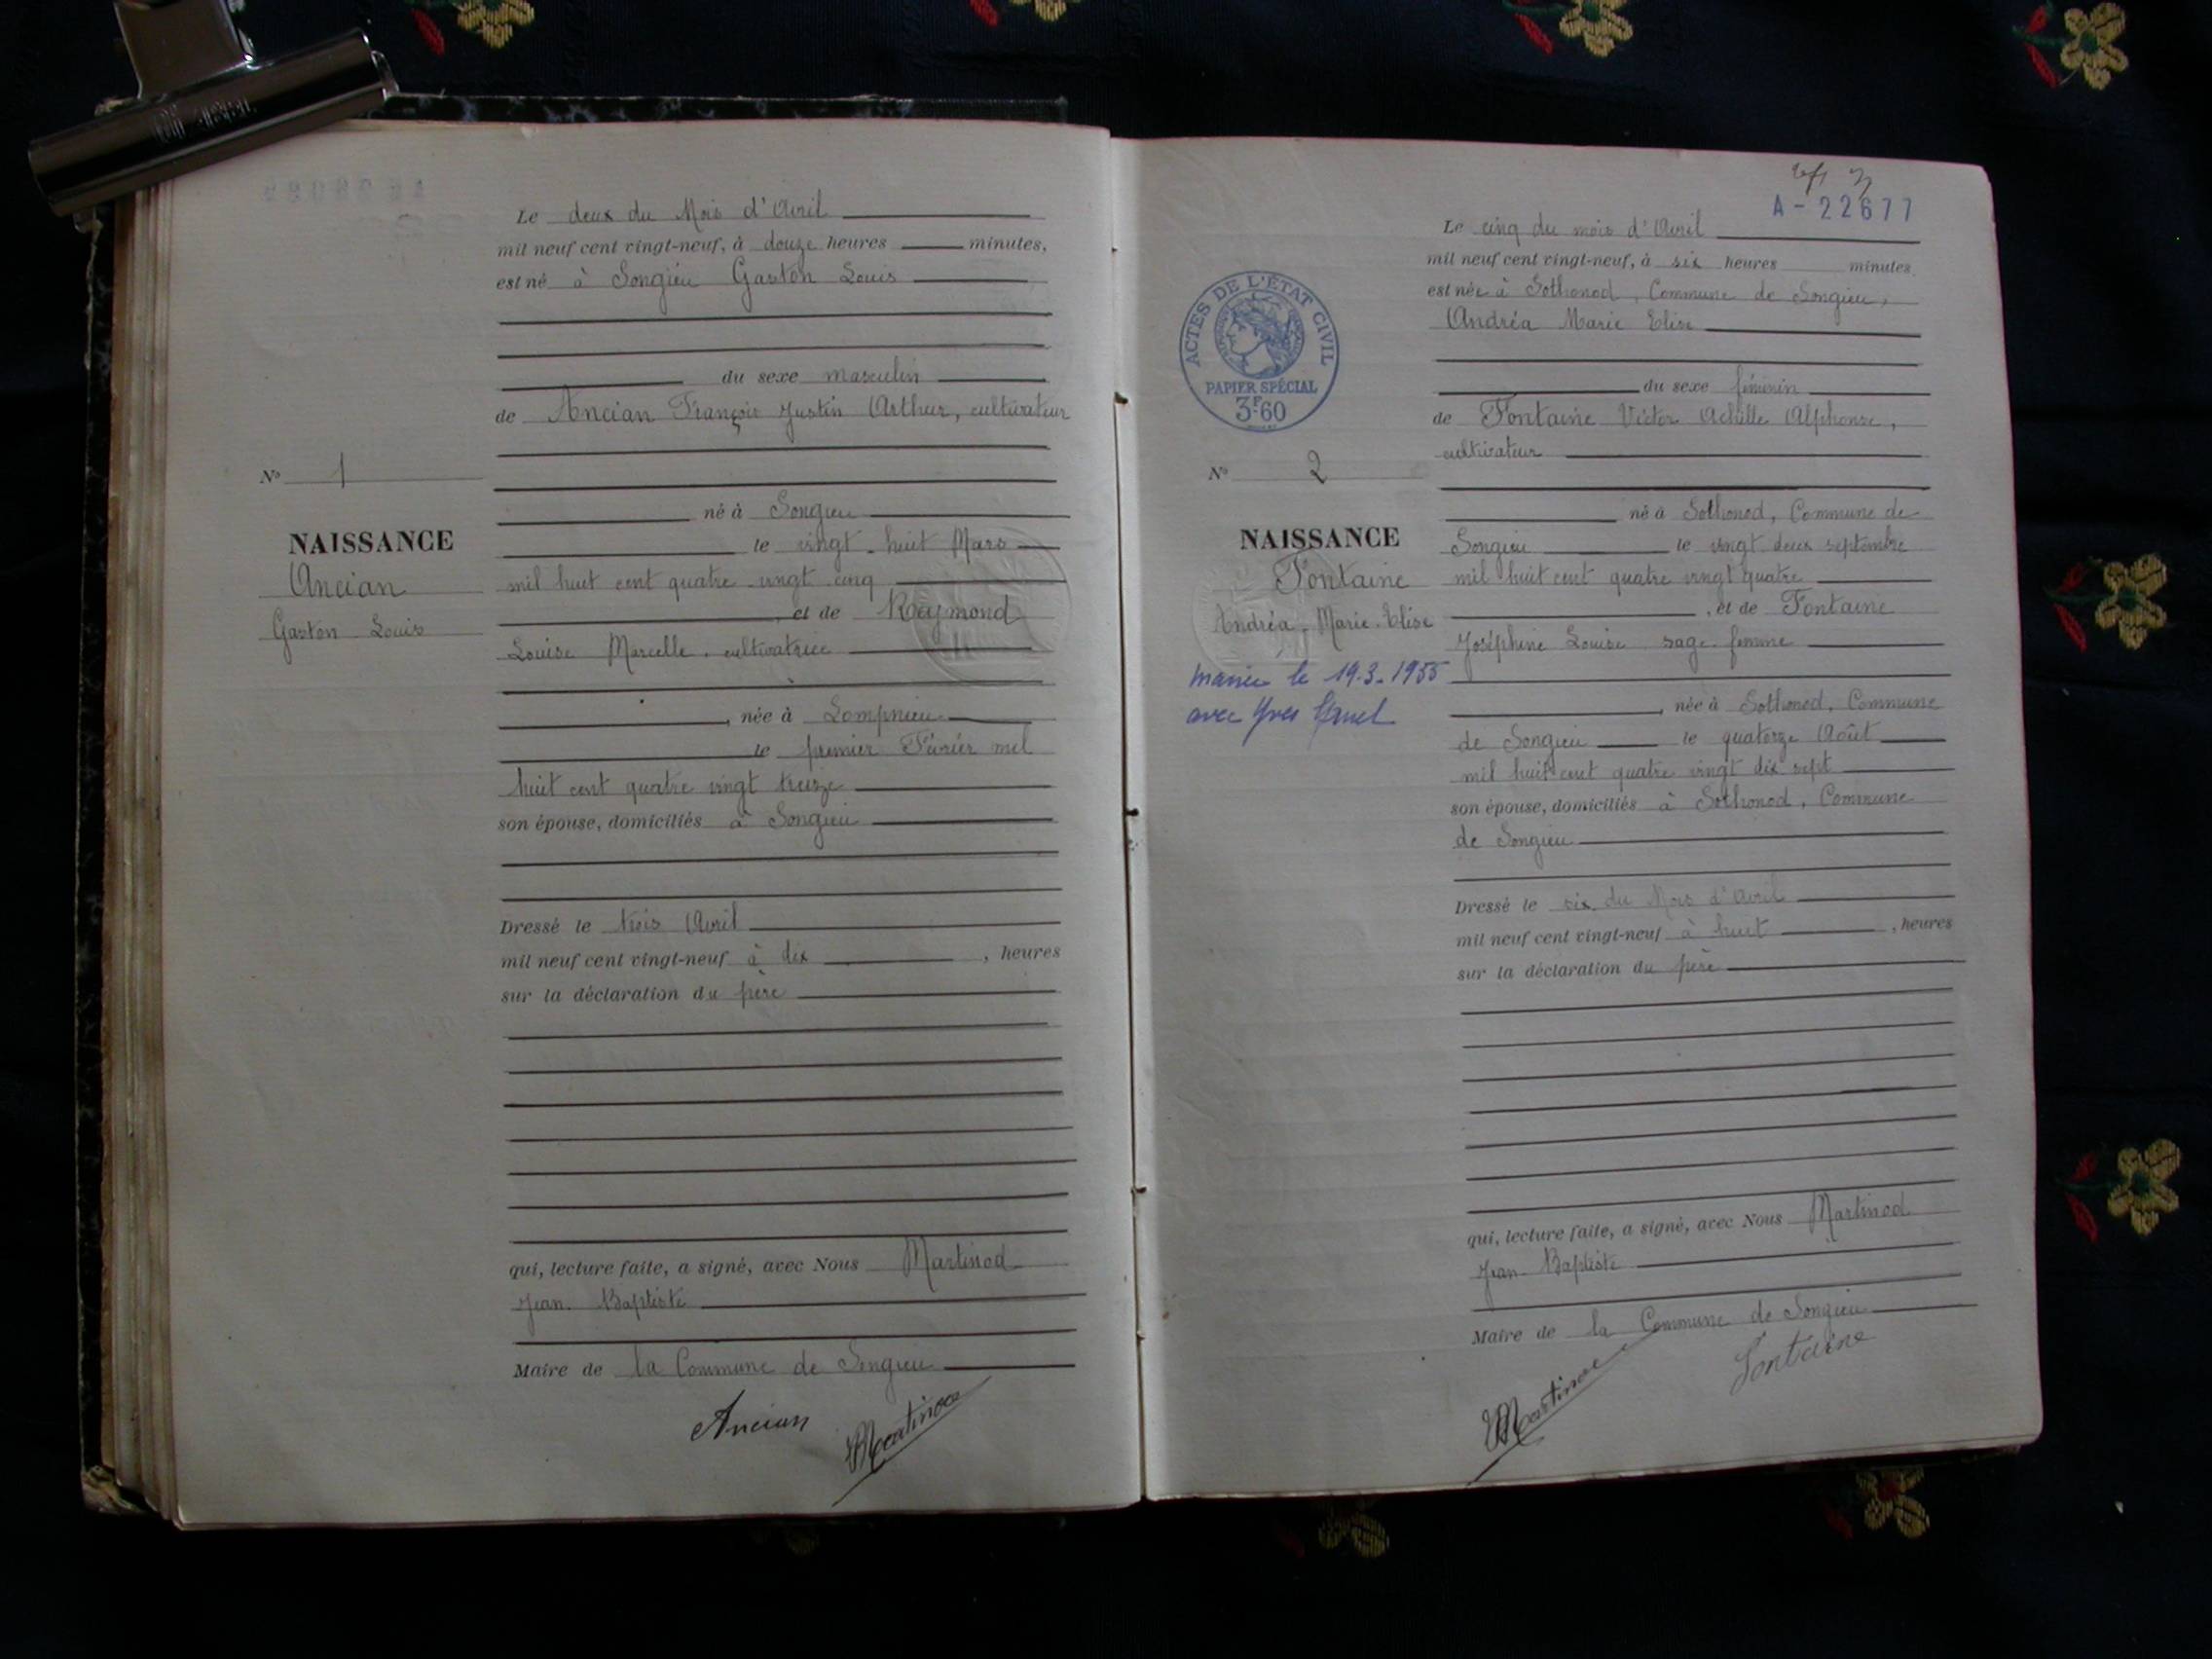 Le deux du Mois d'Avril
mil neuf cent vingt-neuf, à douze heures minutes,
est né à Songieu Gaston Louis
du sexe masculin
de Ancian François Justin Arthur, cultivateur
né à Songieu
le vingt-huit Mars
mil huit cent quatre vingt cinq
, et de Reymond
Louise Marcelle, cultivatrice
, née à Lompnieu
le premier Février mil
huit cent quatre vingt treize
son épouse, domiciliés à Songieu
Dressé le trois Avril
mil neuf cent vingt-neuf à dix , heures
sur la déclaration du père
qui, lecture faite, a signé, avec Nous Martinod
Jean-Baptiste
Maire de la Commune de Songieu
Ancian Martinod
N° 1
NAISSANCE
Ancian
Gaston Louis
A-22677
Le cinq du mois d'Avril
mil neuf cent vingt-neuf, à six heures minutes
est née à Sothonod, Commune de Songieu,
Andréa Marie Elise
du sexe féminin
de Fontaine Victor Achille Alphonse,
cultivateur
né à Sothonod, Commune de
Songieu le vingt deux septembre
mil huit cent quatre vingt quatre
, et de Fontaine
Joséphine Louise sage-femme
, née à Sothonod, Commune
de Songieu le quatorze Août
mil huit cent quatre vingt dix sept
son épouse, domiciliés à Sothonod, Commune
de Songieu
Dressé le six du Mois d'Avril
mil neuf cent vingt-neuf à huit , heures
sur la déclaration du père
qui, lecture faite, a signé, avec Nous Martinod
Jean-Baptiste
Maire de la Commune de Songieu
Martinod Fontaine
ACTES DE L'ÉTAT CIVIL
PAPIER SPÉCIAL
3F.60
N° 2
NAISSANCE
Fontaine
Andréa, Marie-Elise
mariée le 19.3.1955
avec Yves